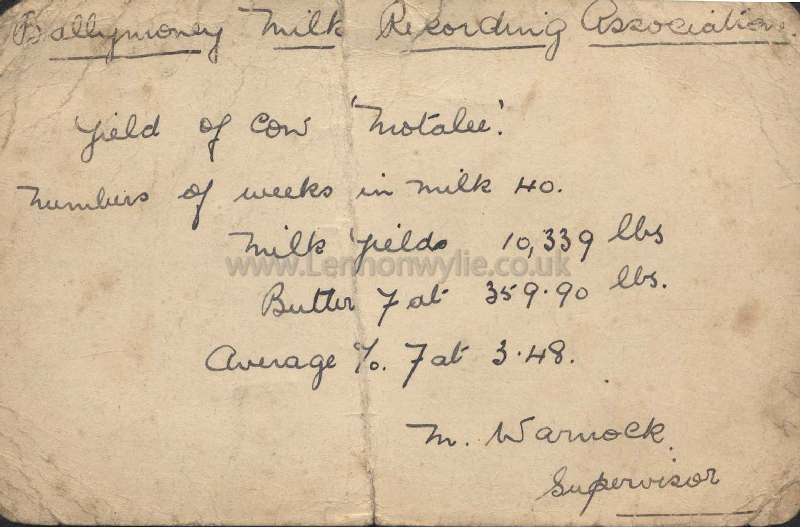 Ballymoney Milk Recording Association.
Yield of Cow 'Motalee'.
Numbers of weeks in milk 40.
Milk Yields 10,339 lbs
www.Lennonwylie.co.uk
Butter Fat 359.90 lbs.
Average %. Fat 3.48.
M. Warnock.
Supervisor